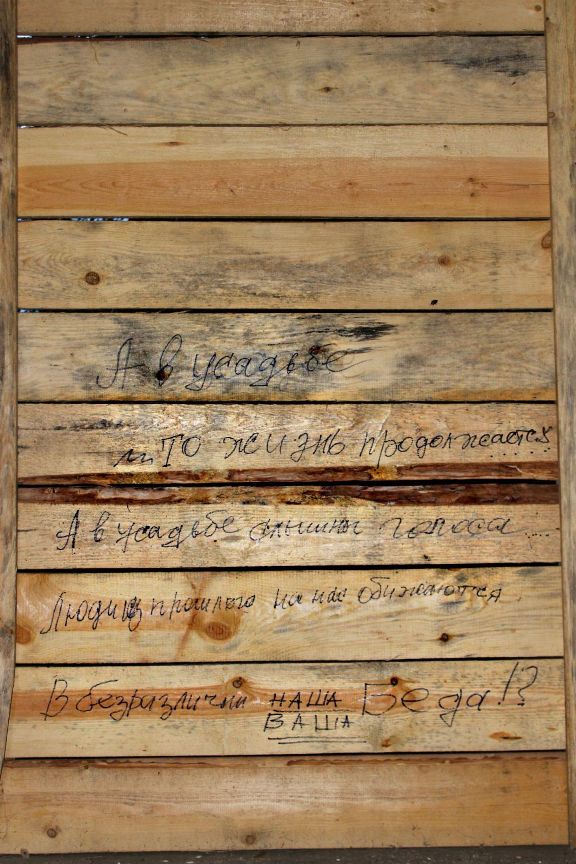 А в усадьбе
... ТО жизнь продолжается ......
А в усадьбе слышны голоса ...
Люди из прошлого на нас обижаются
В безразличии НАША Беда!?
ВАША